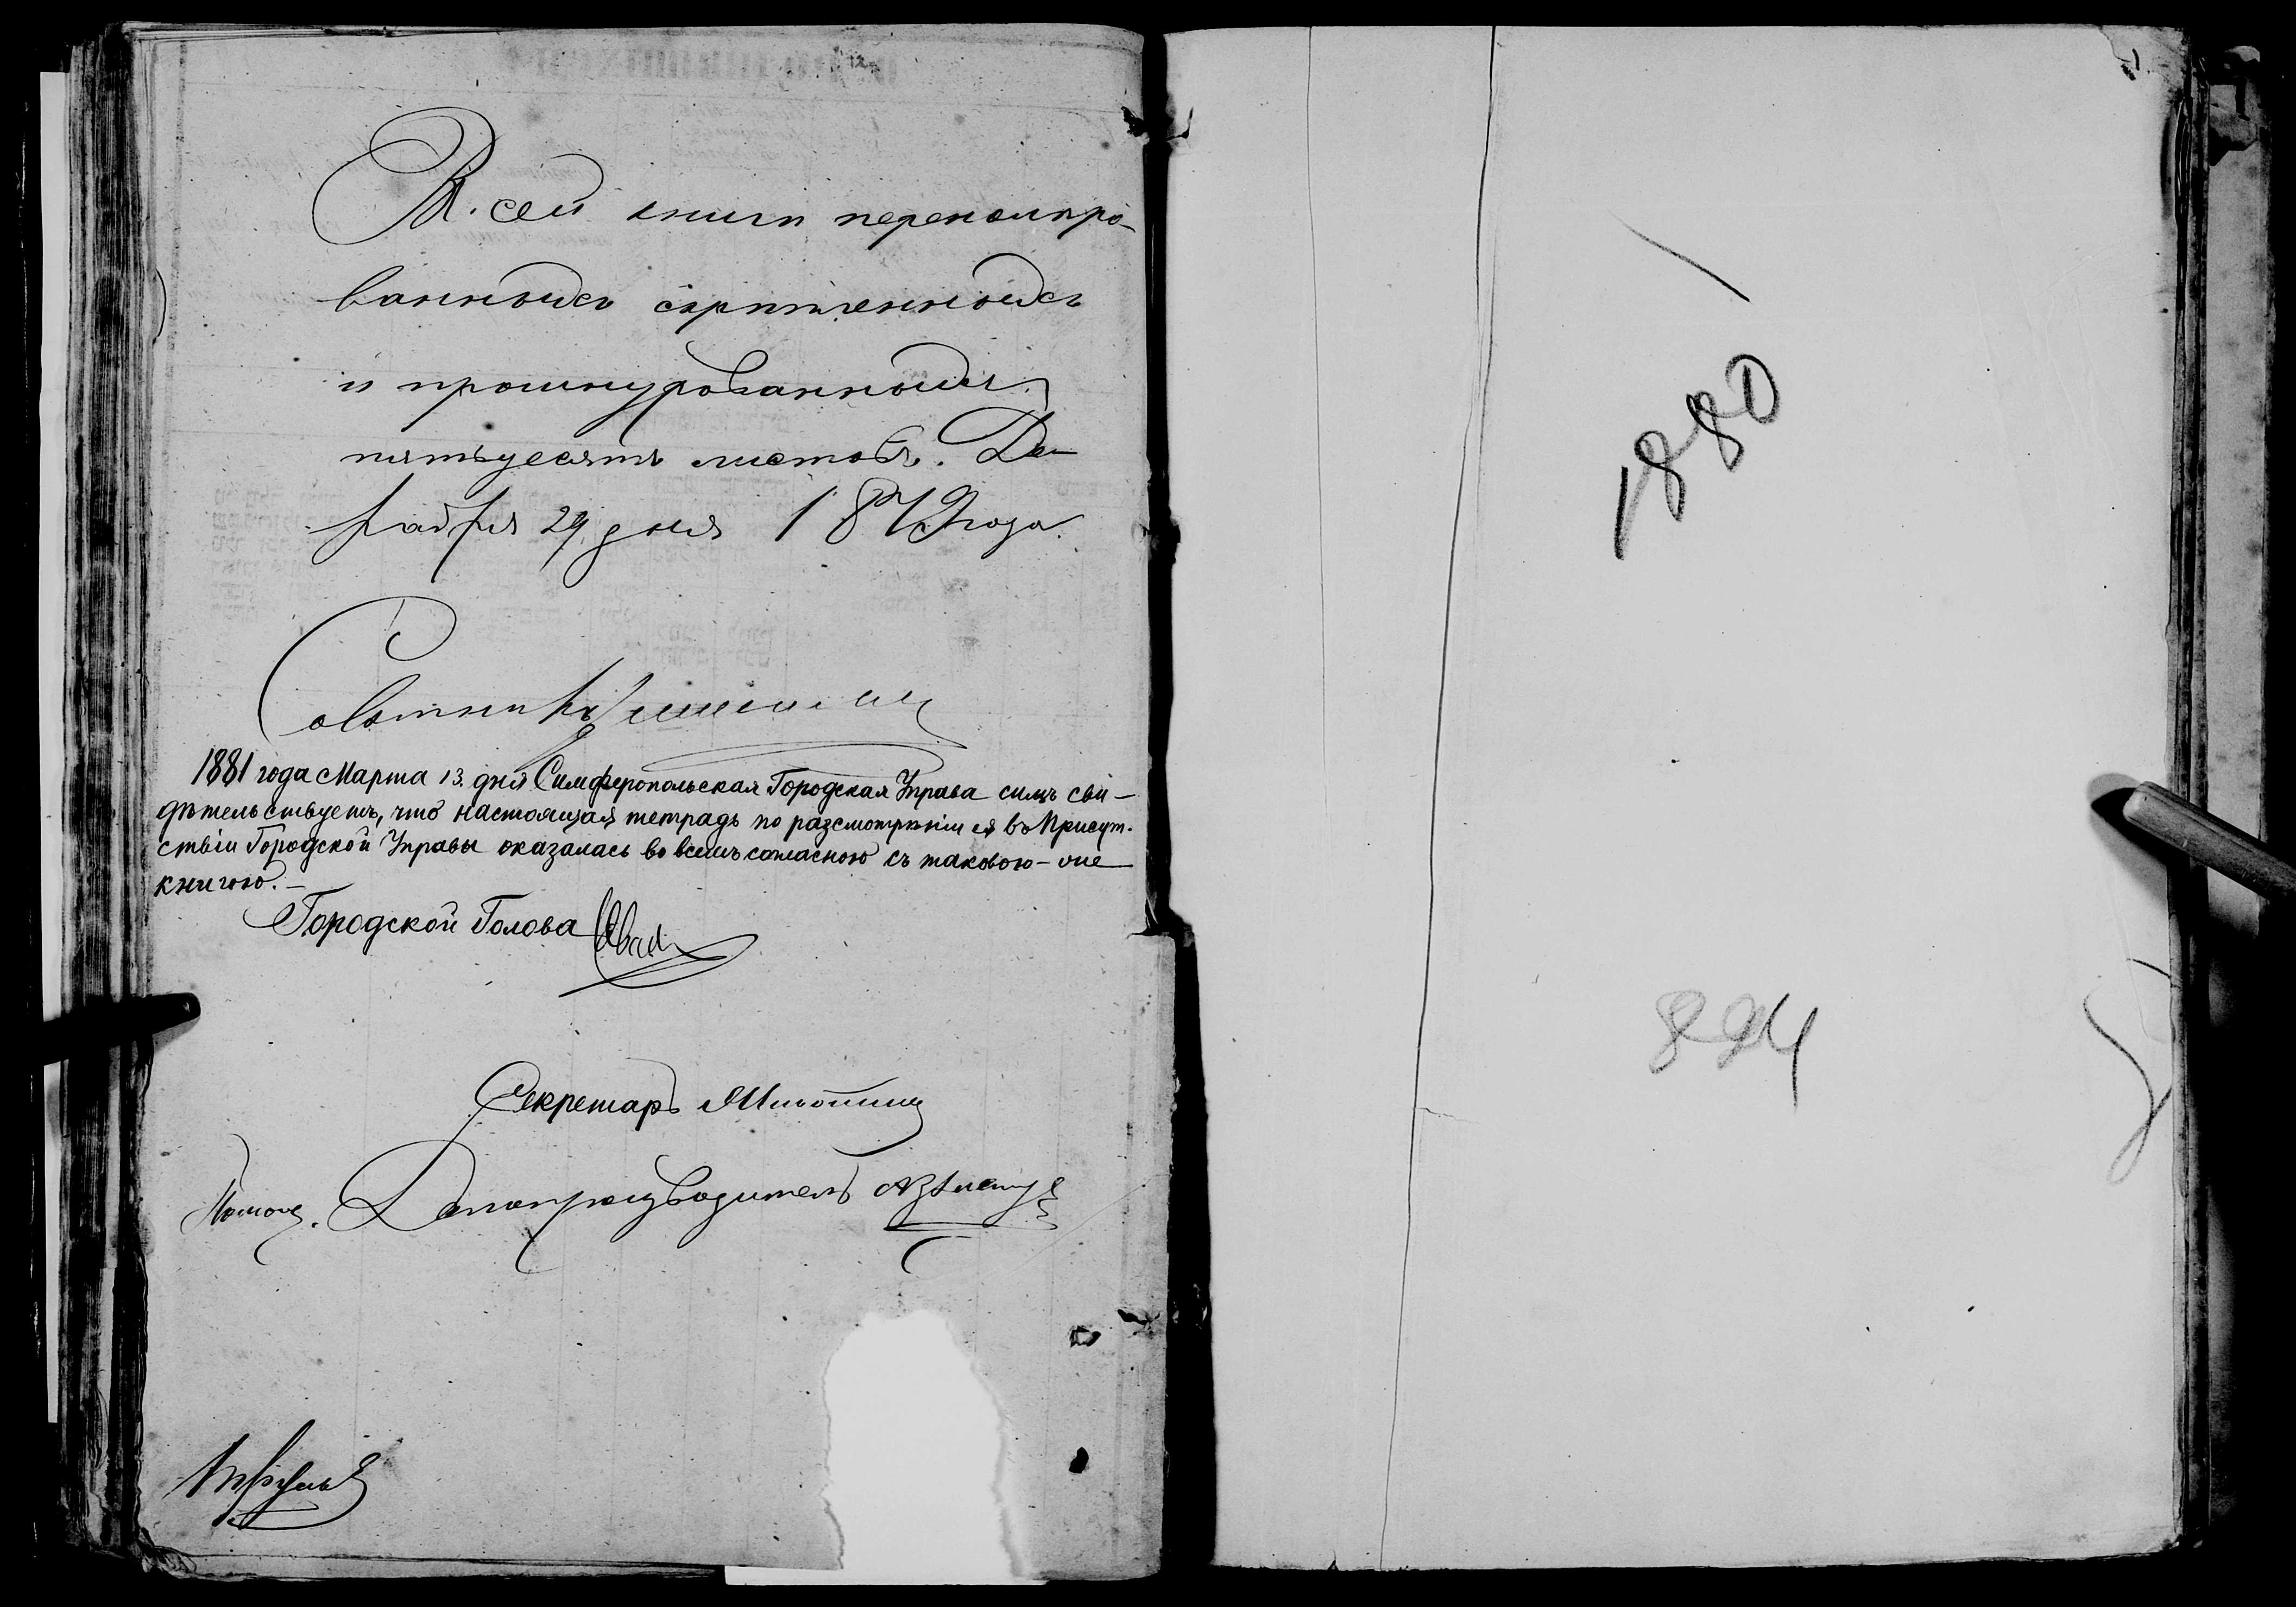 В сей книги переномиро-
ванныхъ скрѣпленныхъ
и прошнурованныхъ
пятьдесятъ листовъ. Де-
кабря 29 дня 1879 года.
Совѣтникъ
1881 года Марта 13 дня Симферопольская Городская Управа симъ сви-
дѣтельствуетъ, что настоящая тетрадь по разсмотрѣніи ея въ Присут-
ствіи Городской Управы оказалась во всемъ согласною съ таковою-же
книгою.-
Городской Голова
Секретарь
Помощ. Делопроизводитель
1880
894